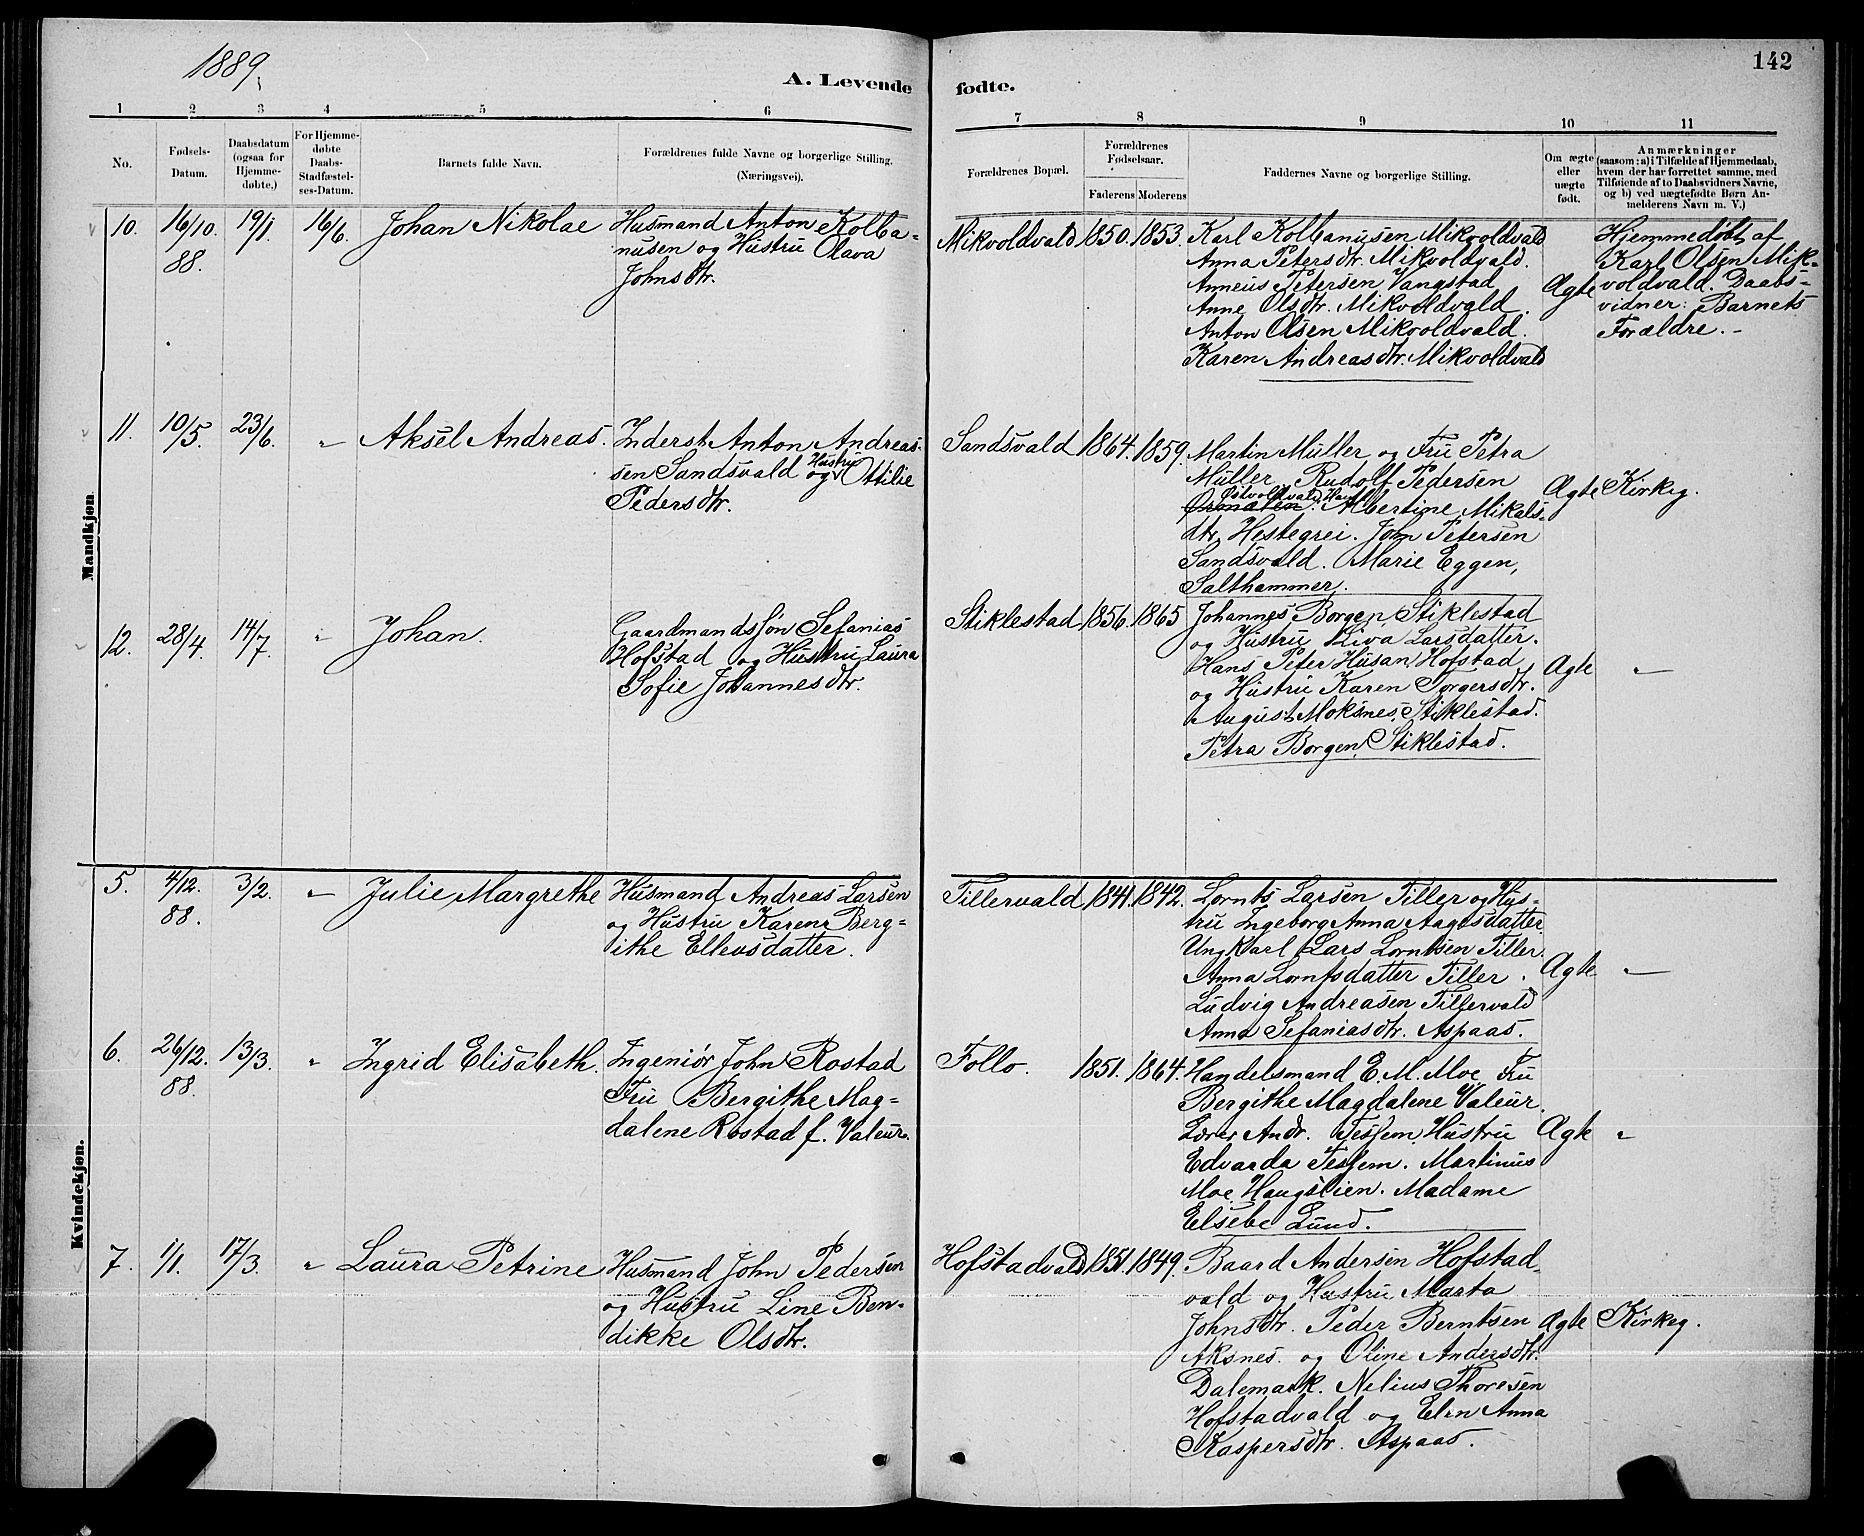 1889.
142
A. Levende fødte.
1 2 3 4 5 6 7 8 9 10 11
No.
Fødsels-
Datum.
Daabsdatum
(ogsaa for
Hjemme-
døbte,)
For Hjemme-
døbte
Daabs-
Stadfæstel-
ses-Datum.
Barnets fulde Navn.
Forældrenes fulde Navne og borgerlige Stilling.
(Næringsvei).
Forældrenes Bopæl.
Forældrenes
Fødselsaar.
Faderens Moderens
Faddernes Navne og borgerlige Stilling.
Om ægte
eller
uægte
født.
Anmærkninger
(saasom: a) i Tilfælde af Hjemmedaab,
hvem der har forrettet samme, med
Tilføiende af to Daabsvidners Navne,
og b) ved uægtefødte Børn An-
melderens Navn m. V.)
Mandkjøn.
10.
16/10.
88.
19/1.
16/6.
Johan Nikolae
Husmand Anton Kolba-
nusen og Hustru Olava
Johnsdtr.
Mikvoldvald
1850. 1853.
Karl Kolbanusen Mikvoldvald
Anna Petersdtr. Mikvoldvald.
Anneus Petersen Vangstad
Anne Olsdtr. Mikvoldvald.
Anton Olsen Mikvoldvald.
Karen Andreasdtr. Mikvoldvald
Ægte
Hjemmedøbt af
Karl Olsen Mik-
voldvald. Daabs-
vidner: Barnets
Forældre. -
11.
10/5.
23/6.
"
Aksel Andreas.
Inderst Anton Andreas-
sen Sandsvald og Hustru Ottilie
Pedersdtr.
Sandsvald
1864. 1859.
Martin Müller og Fru Petra
Müller. Rudolf Pedersen
Østvoldvald. Albertine Mikals-
dtr. Hestegrei. John Petersen
Sandsvald. Marie Eggen,
Salthammer.
Ægte
Kirkeg.
12.
28/4.
14/7.
"
Johan.
Gaardmandssøn Sefanias
Hofstad og Hustru Laura
Sofie Johannesdtr.
Stiklestad
1856. 1865
Johannes Borgen Stiklestad
og Hustru Liva Larsdatter.
Hans Peter Husan Hofstad
og Hustru Karen Torgersdtr.
August Moksnes, Stiklestad.
Petra Borgen, Stiklestad.
Ægte
"
Kvindekjøn.
5.
4/12.
88.
3/2.
"
Julie Margrethe
Husmand Andreas Larsen
og Hustru Karen Berg-
ithe Ellevsdatter.
Tillervald
1841. 1842.
Lornts Larsen Tiller og Hus-
tru Ingeborg Anna Aagesdatter.
Ungkarl Lars Lorntsen Tiller.
Anna Lorntsdatter Tiller.
Ludvig Andreasen Tillervald
Anna Sefaniasdtr. Aspaas.
Ægte
"
6.
26/12.
88.
13/3.
"
Ingrid Elisabeth.
Ingeniør John Rostad
Fru Bergithe Mag-
dalene Rostad f. Valeur.
Follo.
1851. 1864.
Handelsmand E. M. Moe. Fru
Bergithe Magdalene Valeur.
Lærer Andr. Tessem. Hustru
Edvarda Tessem. Martinus
Moe, Haugslien. Madame
Elsebe Lund.
Ægte
"
7.
1/1.
17/3.
"
Laura Petrine
Husmand John Pedersen
og Hustru Line Ben-
dikke Olsdtr.
Hofstadvald
1851. 1849.
Baard Andersen Hofstad-
vald og Hustru Marta
Johnsdtr. Peder Berntsen
Aksnes. og Oline Andersdtr.
Dalemark. Nelius Thoresen
Hofstadvald og Elen Anna
Kaspersdtr. Aspaas.
Ægte
Kirkeg.